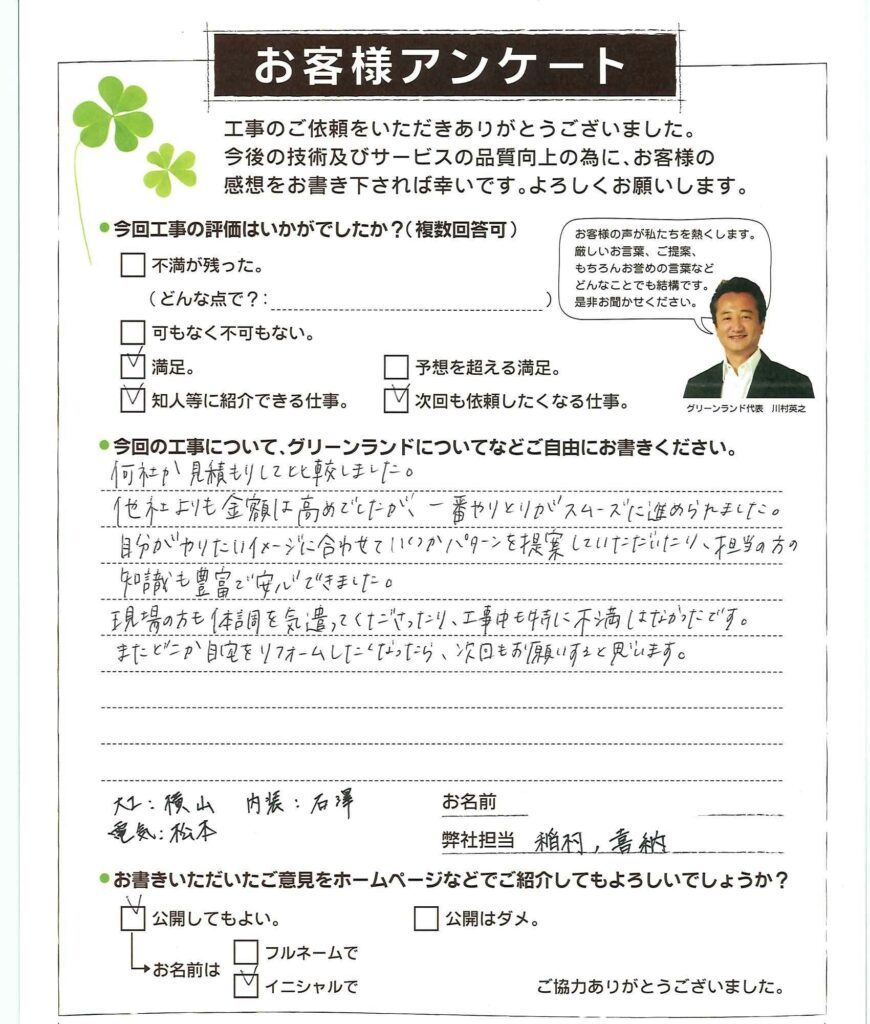 お客様アンケート
工事のご依頼をいただきありがとうございました。
今後の技術及びサービスの品質向上の為に、お客様の
感想をお書き下されば幸いです。よろしくお願いします。
今回工事の評価はいかがでしたか？（複数回答可）
不満が残った。
（どんな点で？：　）
可もなく不可もない。
満足。　予想を超える満足。
知人等に紹介できる仕事。　次回も依頼したくなる仕事。
お客様の声が私たちを熱くします。
厳しいお言葉、ご提案、
もちろんお誉めの言葉など
どんなことでも結構です。
是非お聞かせください。
グリーンランド代表　川村英之
今回の工事について、グリーンランドについてなどご自由にお書きください。
何社か見積もりして比較しました。
他社よりも金額は高めでしたが、一番やりとりがスムーズに進められました。
自分がやりたいイメージに合わせていくつかパターンを提案していただいたり、担当の方の
知識も豊富で安心できました。
現場の方も体調を気遣ってくださったり、工事中も特に不満はなかったです。
またどこか自宅をリフォームしたくなったら、次回もお願いすると思います。
大工：横山　内装：石澤
電気：松本
お名前
弊社担当　稲村，喜納
お書きいただいたご意見をホームページなどでご紹介してもよろしいでしょうか？
公開してもよい。　公開はダメ。
お名前は　フルネームで
イニシャルで
ご協力ありがとうございました。